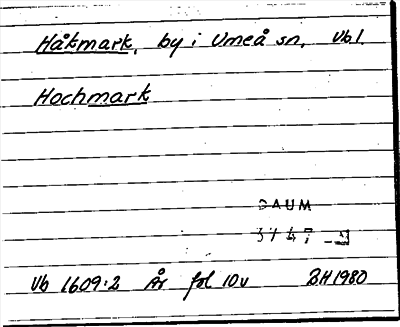 Håkmark, by i Umeå sn, Vbl.
Hochmark
DAUM
Vb 1609:2 År fol 10v BH 1980